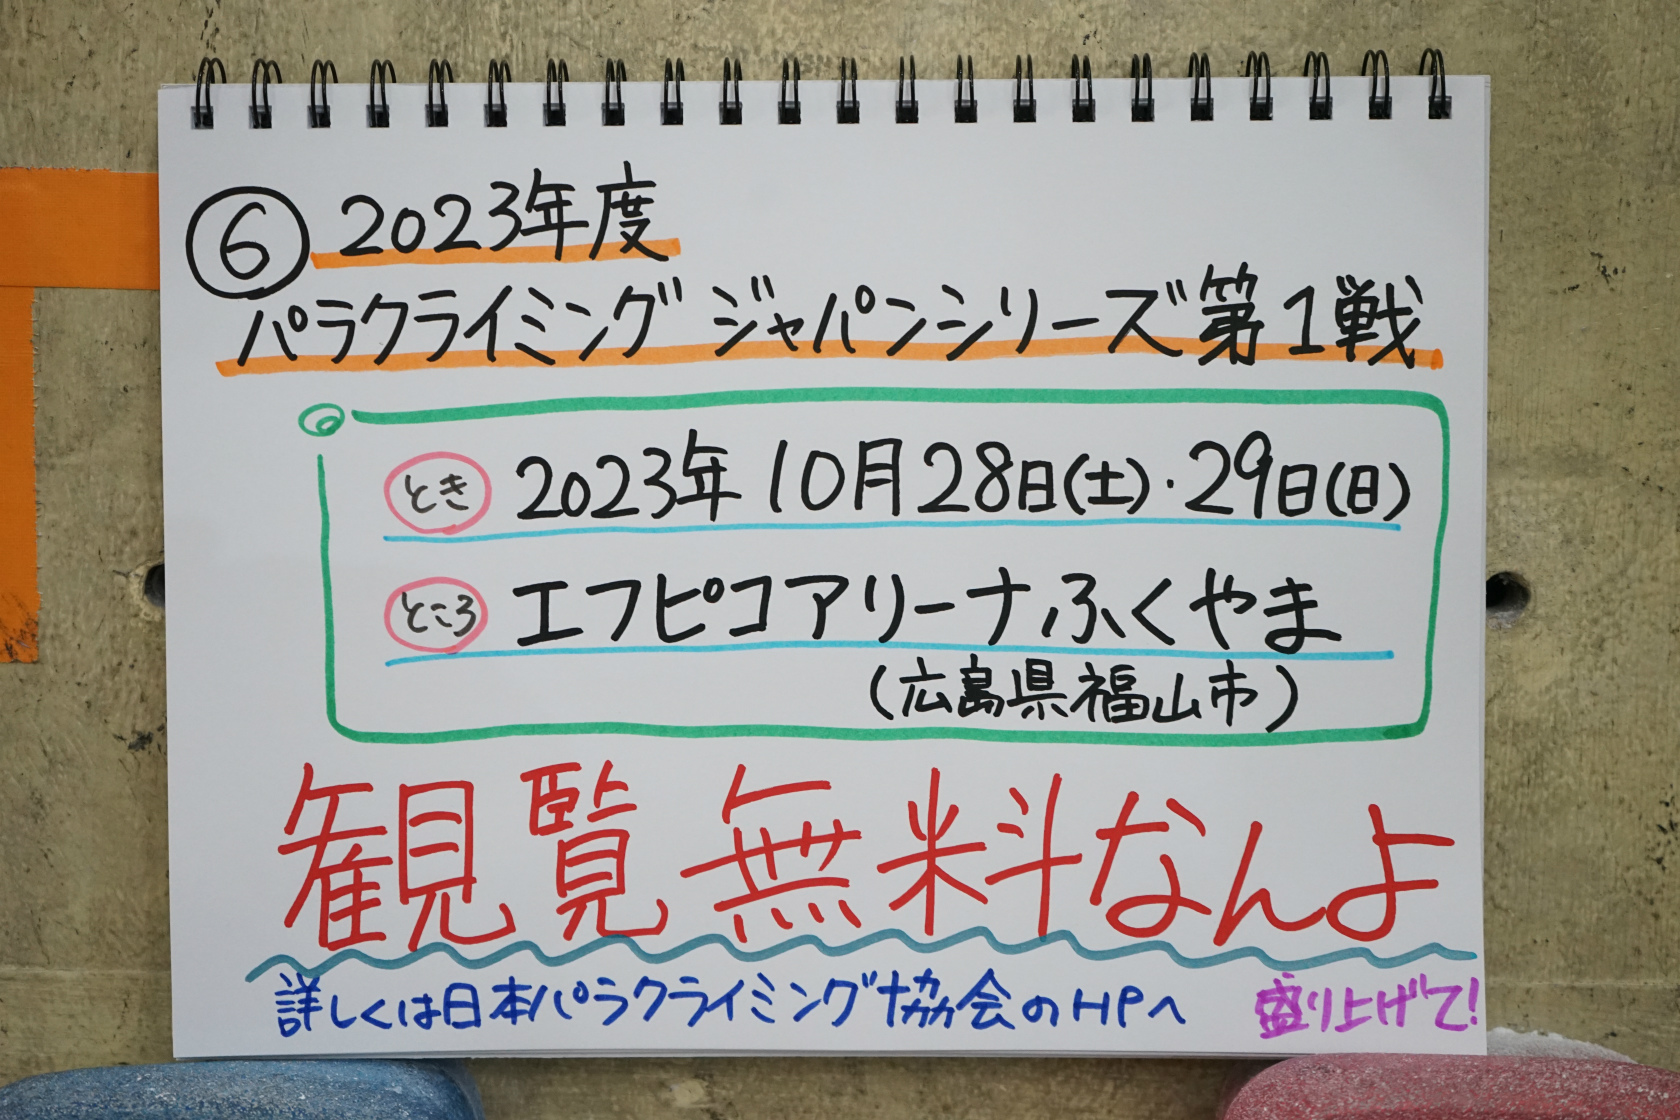 ⑥ 2023年度
パラクライミング ジャパンシリーズ第1戦
とき 2023年10月28日(土)・29日(日)
ところ エフピコアリーナふくやま
(広島県福山市)
観覧無料なんよ
詳しくは日本パラクライミング協会のHPへ 盛り上げて!